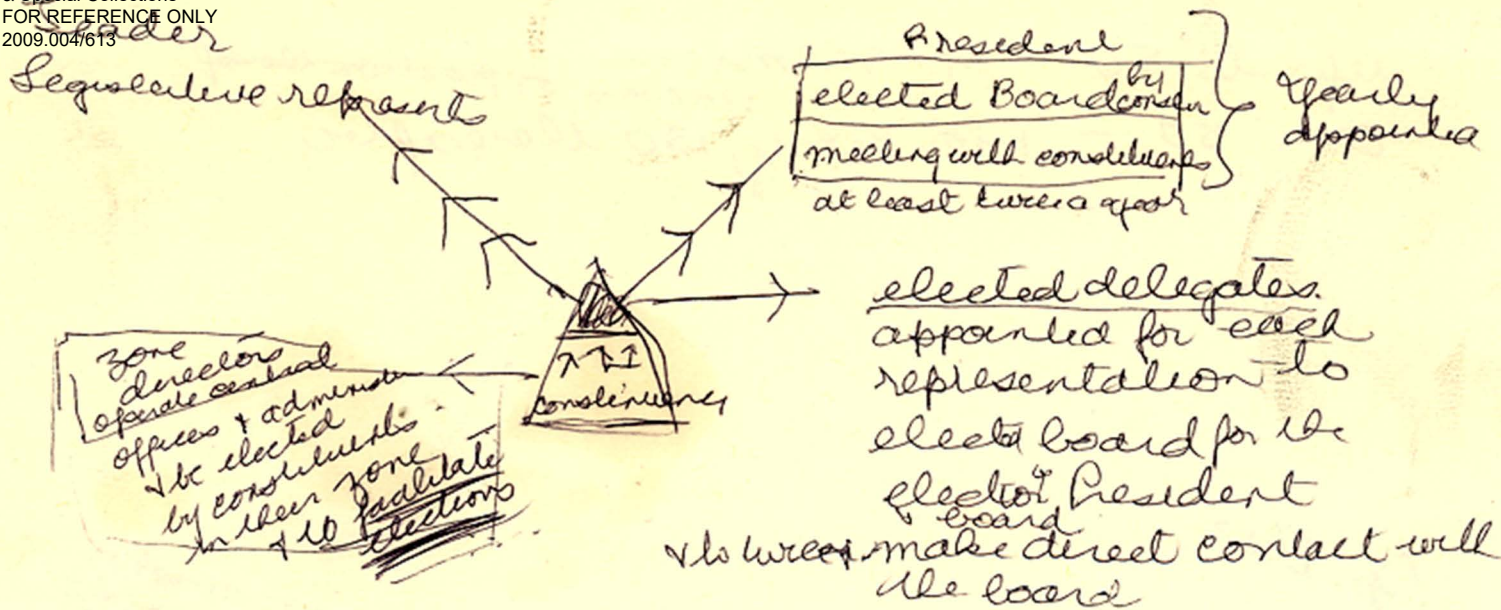 & Special Collections
FOR REFERENCE ONLY
2009.004/613
Leader
Legislative represents
President
elected Board by
meeting with constituents
at least twice a year
Yearly
appointed
elected delegates.
appointed for each
representation to
elect board for the
elector President
board
& to make direct contact with
the board
constituency
zone
directors
operate central
offices & administer
& be elected
by constituents
in their zone
& to facilitate
elections